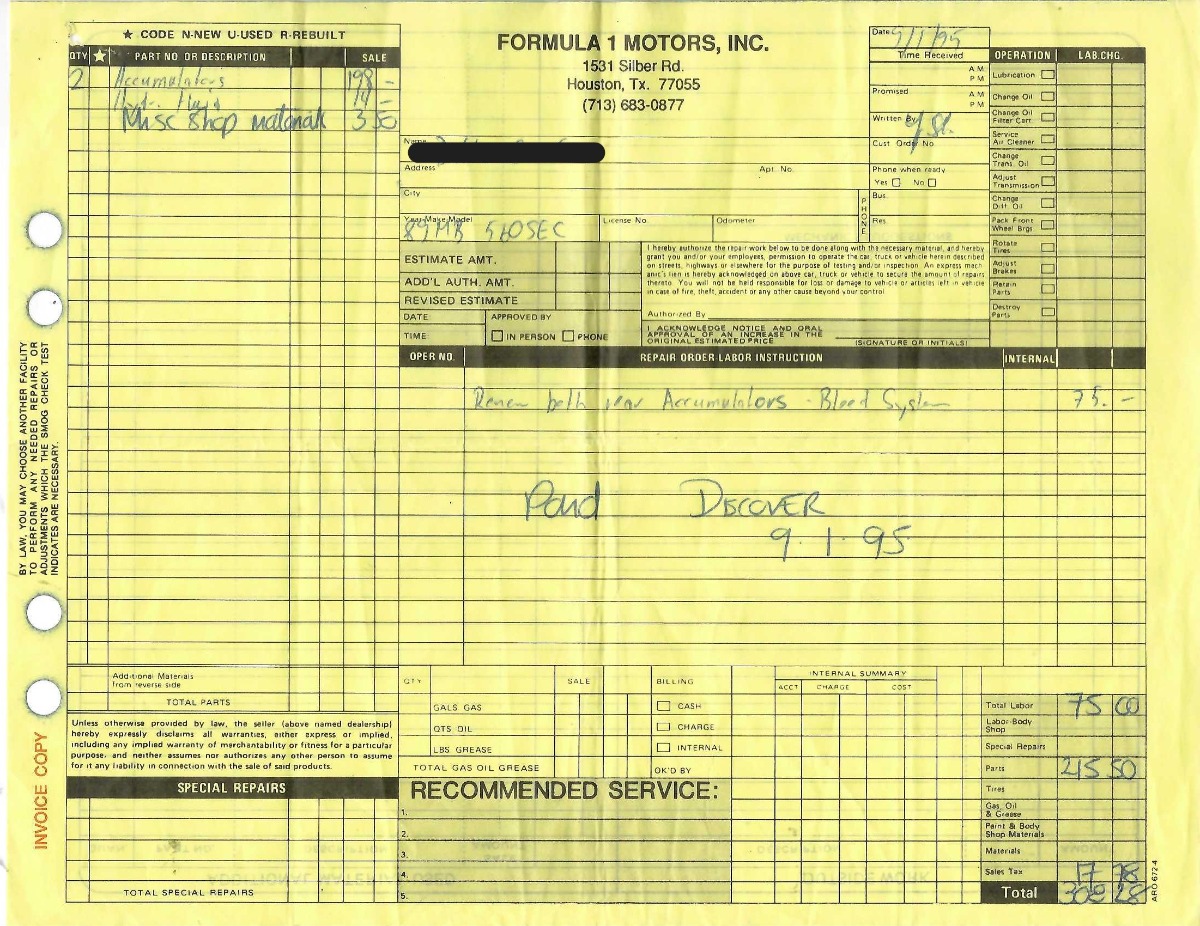 ★ CODE N-NEW U-USED R-REBUILT
QTY ★ PART NO OR DESCRIPTION SALE
2 Accumulators 198 –
Hyd. Fluid 14 –
Misc Shop materials 3 50
FORMULA 1 MOTORS, INC.
1531 Silber Rd.
Houston, Tx. 77055
(713) 683-0877
Date 9/1/95
Time Received
A M
P M
Promised
A M
P M
Written By
Cust. Order No.
Name
Address
Apt. No.
Phone when ready
Yes No
City
PHONE
Bus.
Res.
Year-Make-Model
89 MB 560SEC
License No.
Odometer
OPERATION LAB.CHG.
Lubrication
Change Oil
Change Oil
Filter Cart.
Service
Air Cleaner
Change
Trans. Oil
Adjust
Transmission
Change
Diff. Oil
Pack Front
Wheel Brgs.
Rotate
Tires
Adjust
Brakes
Retain
Parts
Destroy
Parts
ESTIMATE AMT.
ADD'L AUTH. AMT.
REVISED ESTIMATE
DATE:
TIME:
APPROVED BY
IN PERSON PHONE
I hereby authorize the repair work below to be done along with the necessary material, and hereby
grant you and/or your employees, permission to operate the car, truck or vehicle herein described
on streets, highways or elsewhere for the purpose of testing and/or inspection. An express mech
anic's lien is hereby acknowledged on above car, truck or vehicle to secure the amount of repairs
thereto. You will not be held responsible for loss or damage to vehicle or articles left in vehicle
in case of fire, theft, accident or any other cause beyond your control.
Authorized By
I ACKNOWLEDGE NOTICE AND ORAL
APPROVAL OF AN INCREASE IN THE
ORIGINAL ESTIMATED PRICE
(SIGNATURE OR INITIALS)
OPER NO. REPAIR ORDER-LABOR INSTRUCTION INTERNAL
Renew both rear Accumulators - Bleed System 75. –
Paid DISCOVER
9.1.95
BY LAW, YOU MAY CHOOSE ANOTHER FACILITY
TO PERFORM ANY NEEDED REPAIRS OR
ADJUSTMENTS WHICH THE SMOG CHECK TEST
INDICATES ARE NECESSARY.
INVOICE COPY
Additional Materials
from reverse side
TOTAL PARTS
Unless otherwise provided by law, the seller (above named dealership)
hereby expressly disclaims all warranties, either express or implied,
including any implied warranty of merchantability or fitness for a particular
purpose, and neither assumes nor authorizes any other person to assume
for it any liability in connection with the sale of said products.
SPECIAL REPAIRS
TOTAL SPECIAL REPAIRS
QTY SALE BILLING
GALS GAS
QTS OIL
LBS GREASE
TOTAL GAS OIL GREASE
CASH
CHARGE
INTERNAL
OK'D BY
INTERNAL SUMMARY
ACCT. CHARGE COST
RECOMMENDED SERVICE:
1.
2.
3.
4.
5.
Total Labor 75 00
Labor-Body
Shop
Special Repairs
Parts 215 50
Tires
Gas, Oil
& Grease
Paint & Body
Shop Materials
Materials
Sales Tax 17 78
Total 308 28
ARO 672 4